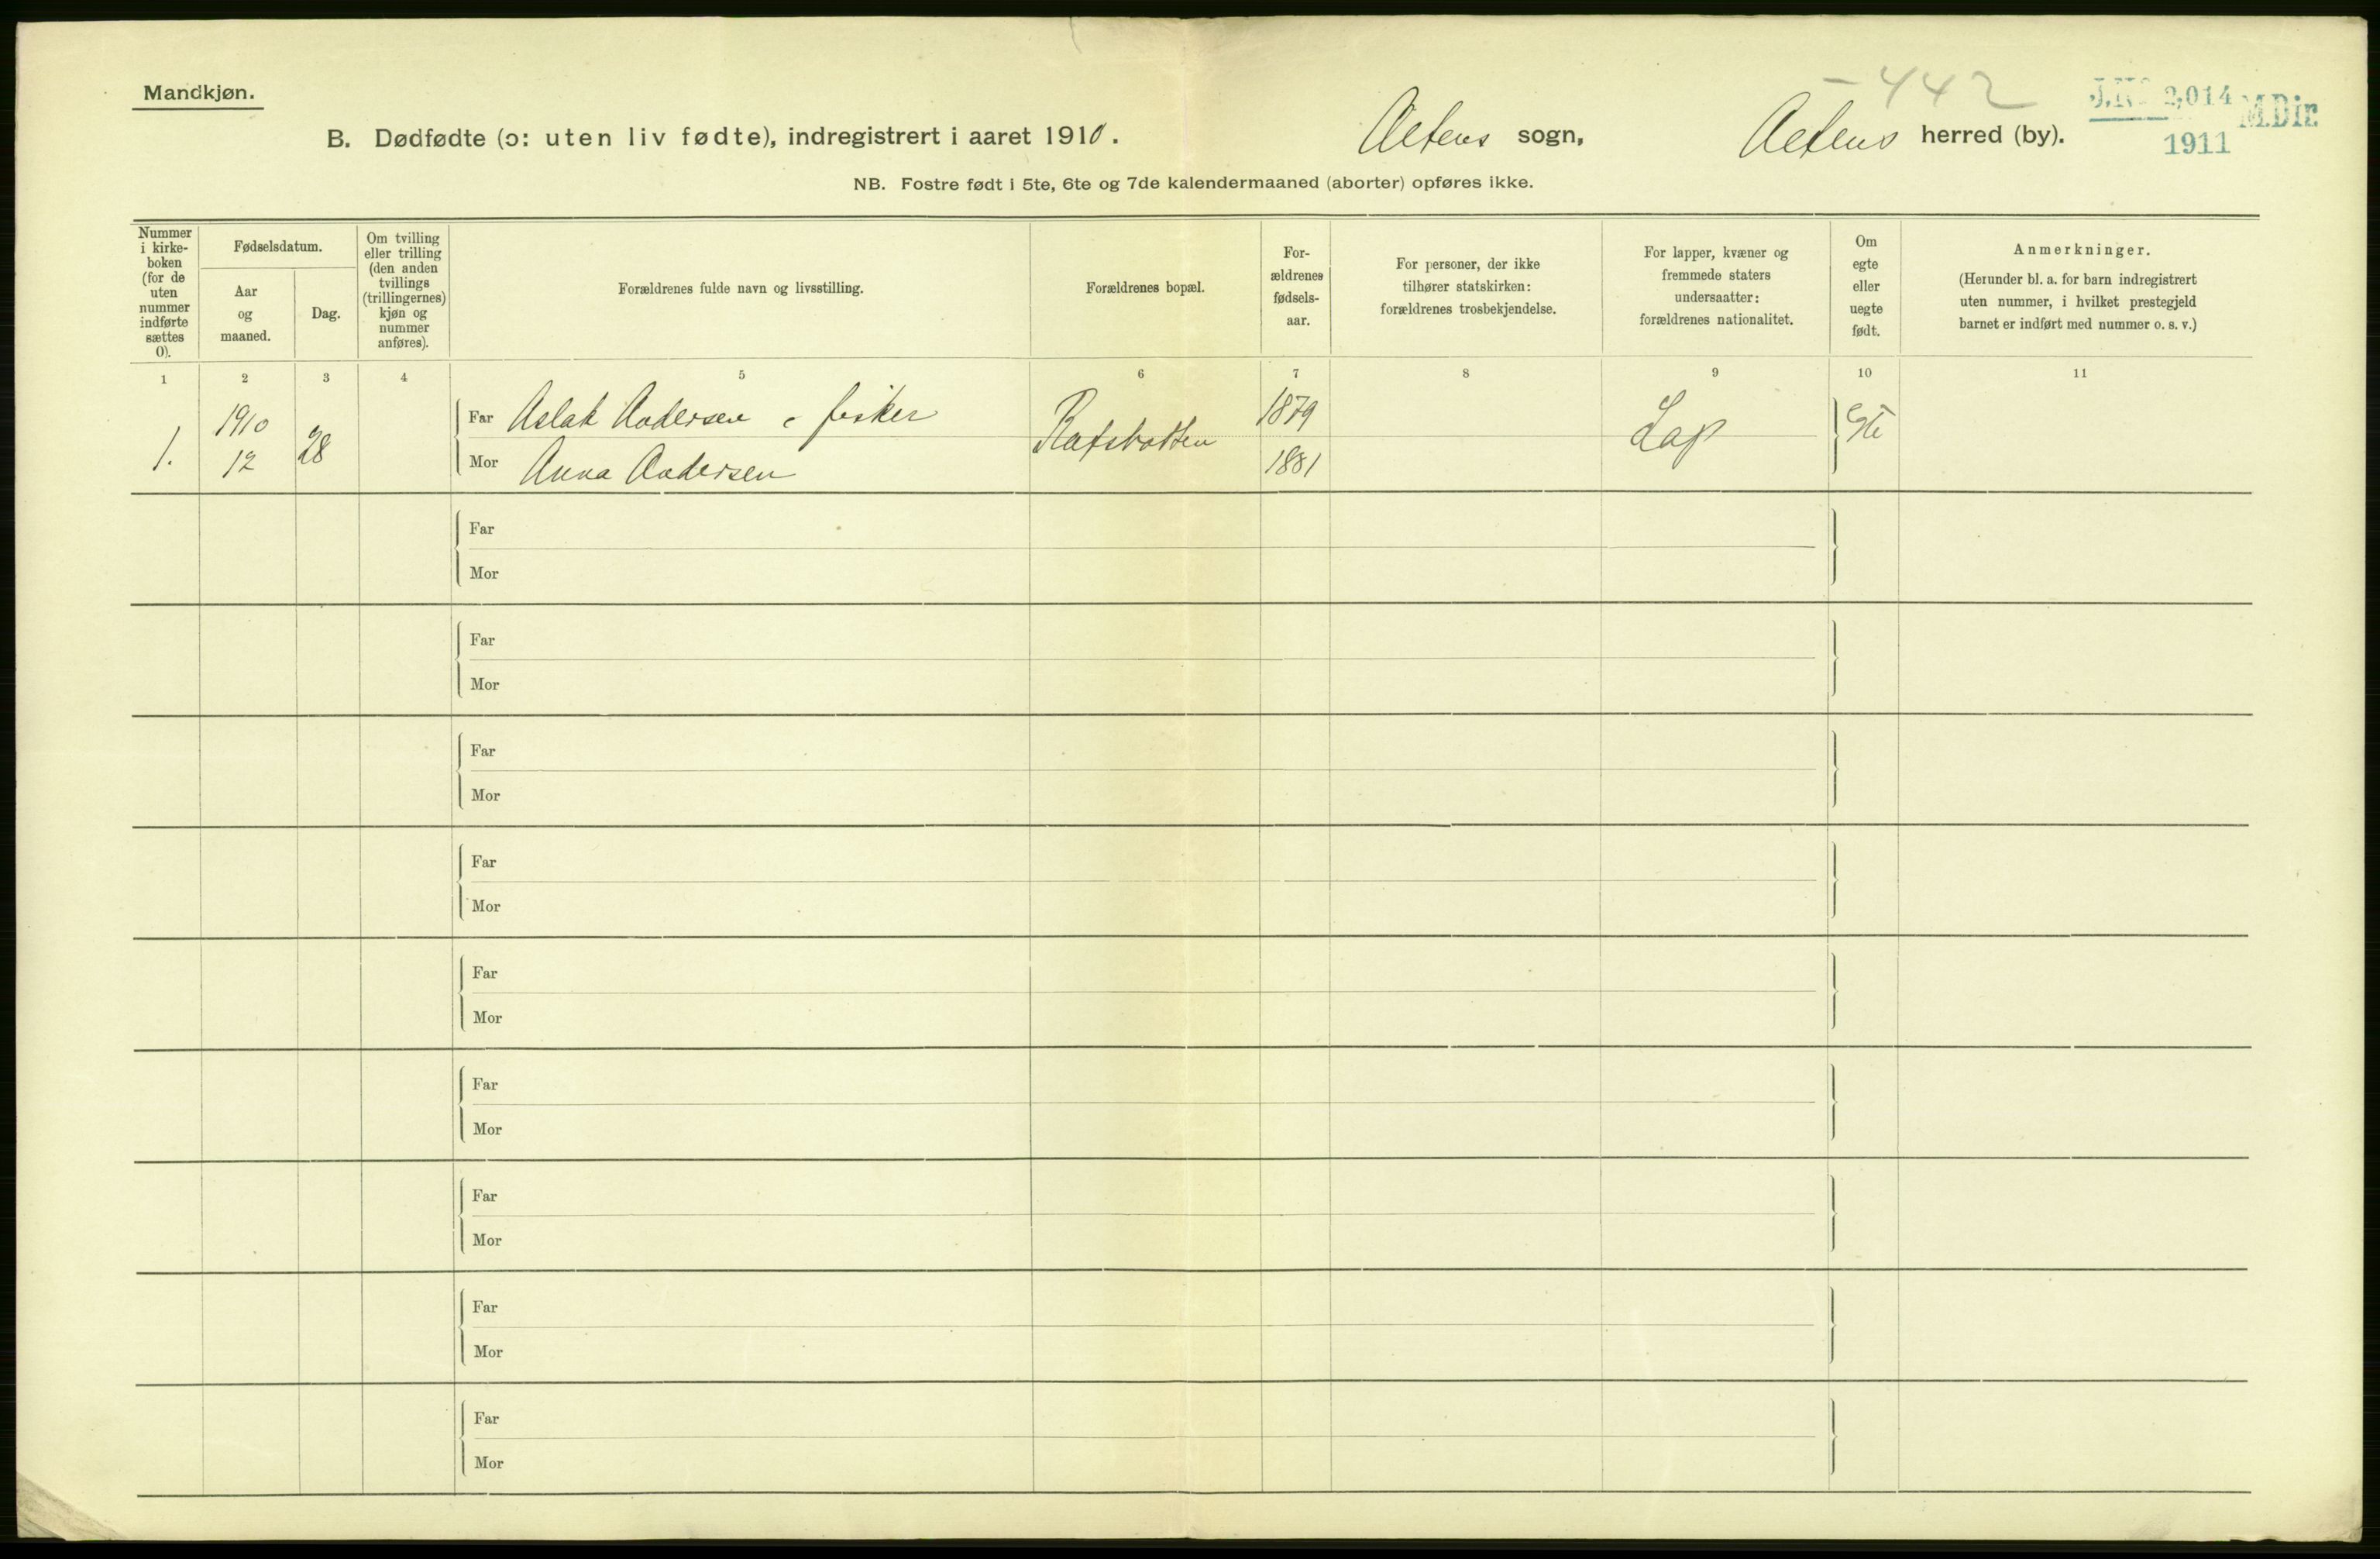 Mandkjøn.
- 442
J.No 2,014 M.Dir.
1911
B. Dødfødte (ɔ: uten liv fødte), indregistrert i aaret 1910. Altens sogn, Altens herred (by).
NB. Fostre født i 5te, 6te og 7de kalendermaaned (aborter) opføres ikke.
Nummer
i kirke-
boken
(for de
uten
nummer
indførte
sættes
0).
Fødselsdatum.
Aar
og
maaned.
Dag.
Om tvilling
eller trilling
(den anden
tvillings
(trillingernes)
kjøn og
nummer
anføres).
Forældrenes fulde navn og livsstilling.
Forældrenes bopæl.
For-
ældrenes
fødsels-
aar.
For personer, der ikke
tilhører statskirken:
forældrenes trosbekjendelse.
For lapper, kvæner og
fremmede staters
undersaatter:
forældrenes nationalitet.
Om
egte
eller
uegte
født.
Anmerkninger.
(Herunder bl. a. for barn indregistrert
uten nummer, i hvilket prestegjeld
barnet er indført med nummer o. s. v.)
1 2 3 4 5 6 7 8 9 10 11
1. 1910 12 28
Far Aslak Andersen fisker
Mor Anna Andersen
Rafsbotten
1879
1881
Lap
Far
Mor
Far
Mor
Far
Mor
Far
Mor
Far
Mor
Far
Mor
Far
Mor
Far
Mor
Far
Mor